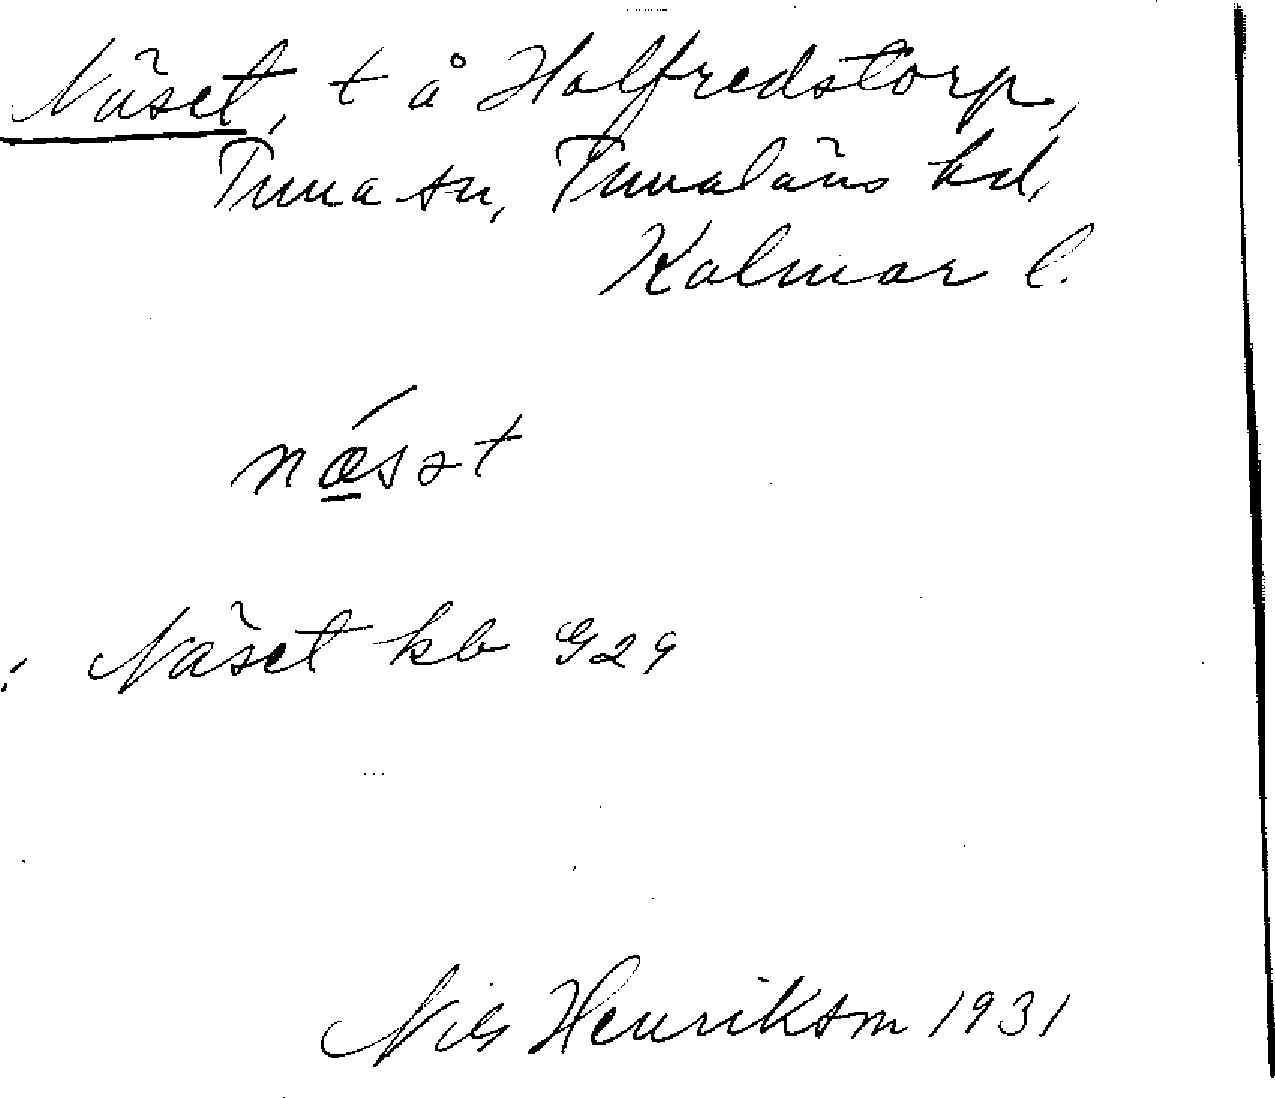 Näset, t å Halfredstorp,
Tuna sn, Tunaläns hd,
Kalmar l.
næsət
: Näset kb 929
Nils Henrikson 1931